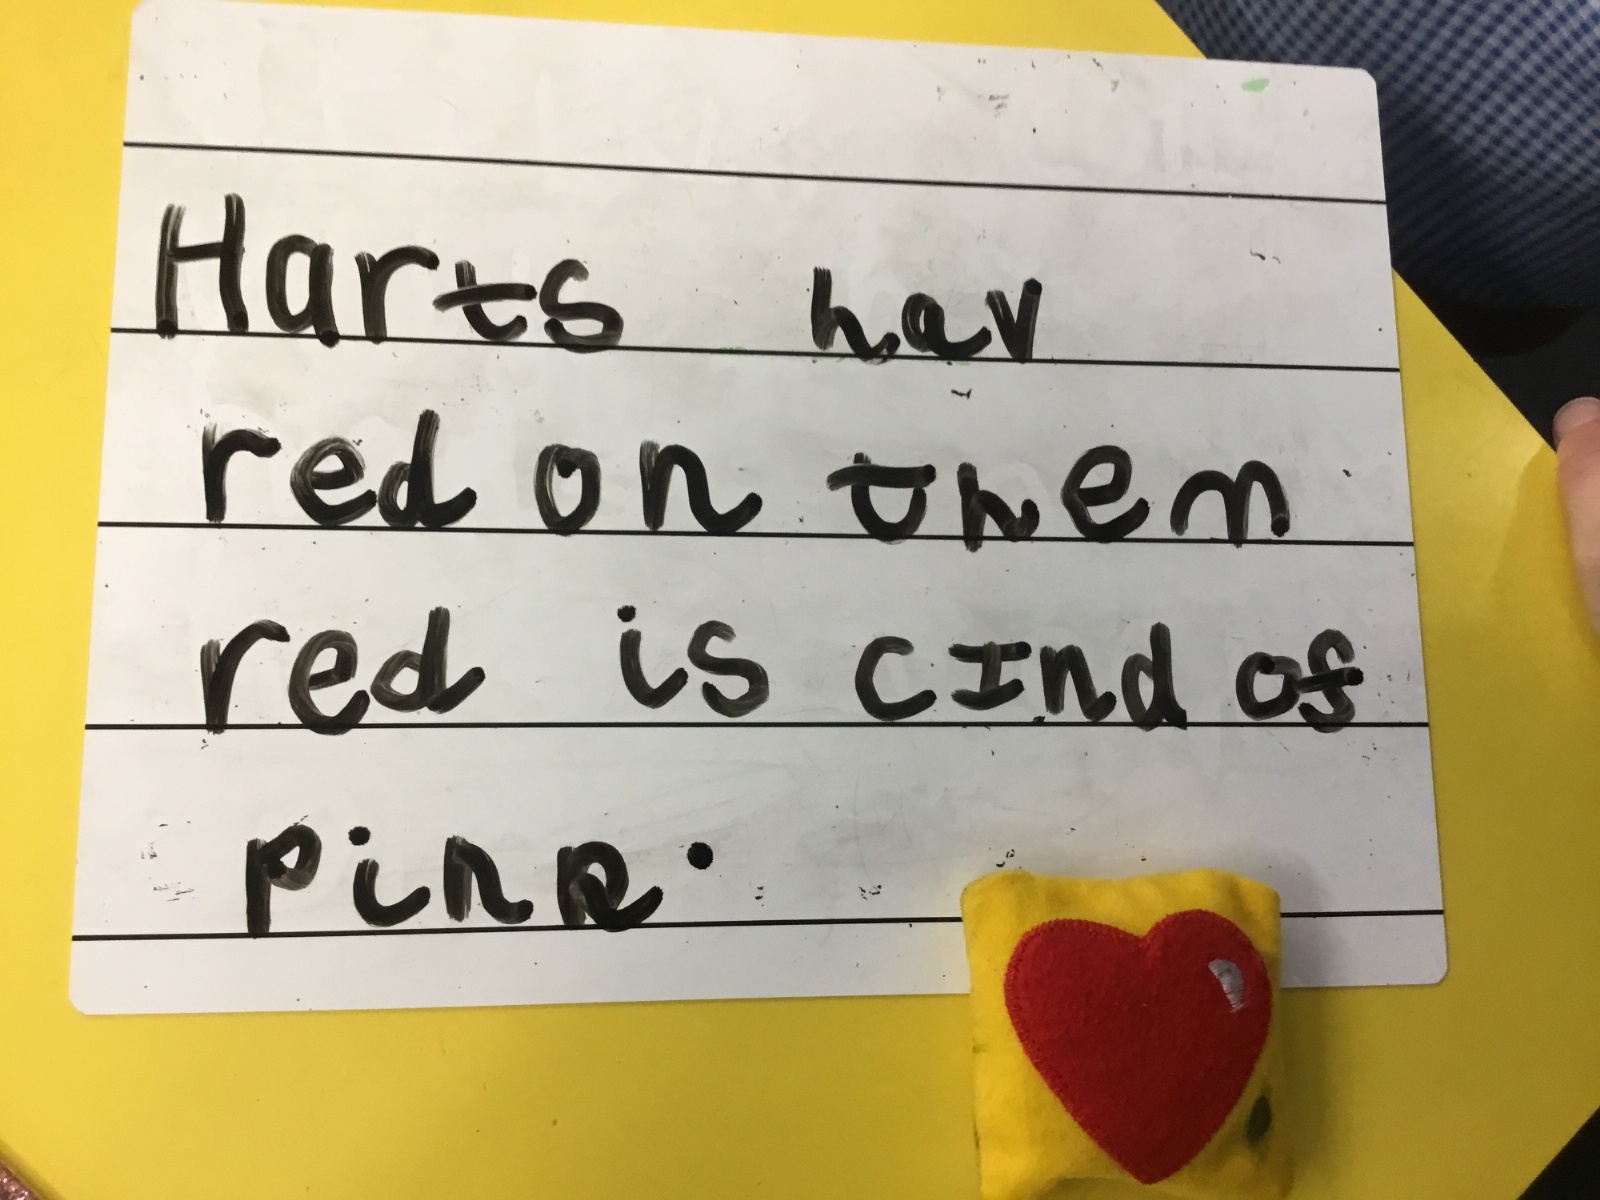 Harts hav
red on them
red is cInd of
pink.